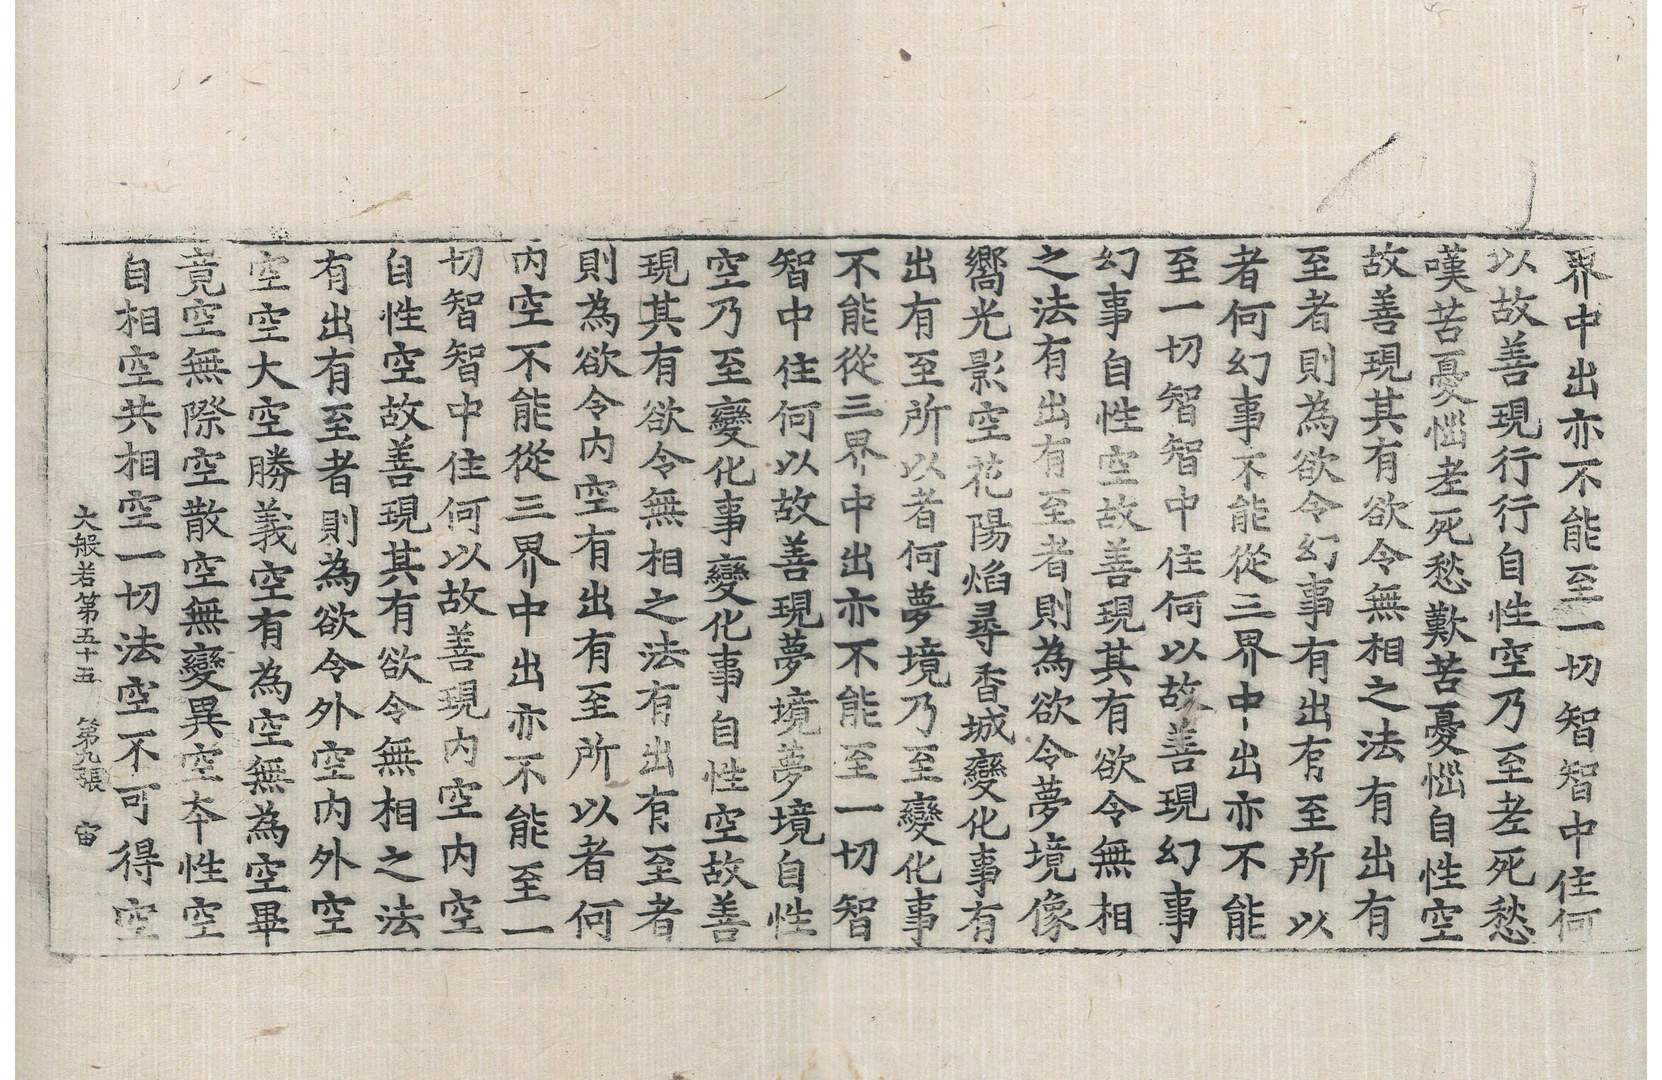 界中出亦不能至一切智智中住何
以故善現行行自性空乃至老死愁
嘆苦憂惱老死愁歎苦憂惱自性空
故善現其有欲令無相之法有出有
至者則為欲令幻事有出有至所以
者何幻事不能從三界中出亦不能
至一切智智中住何以故善現幻事
幻事自性空故善現其有欲令無相
之法有出有至者則為欲令夢境像
嚮光影空花陽焰尋香城變化事有
出有至所以者何夢境乃至變化事
不能從三界中出亦不能至一切智
智中住何以故善現夢境夢境自性
空乃至變化事變化事自性空故善
現其有欲令無相之法有出有至者
則為欲令內空有出有至所以者何
內空不能從三界中出亦不能至一
切智智中住何以故善現內空內空
自性空故善現其有欲令無相之法
有出有至者則為欲令外空內外空
空空大空勝義空有為空無為空畢
竟空無際空散空無變異空本性空
自相空共相空一切法空不可得空
大般若第五十五 第九張 宙